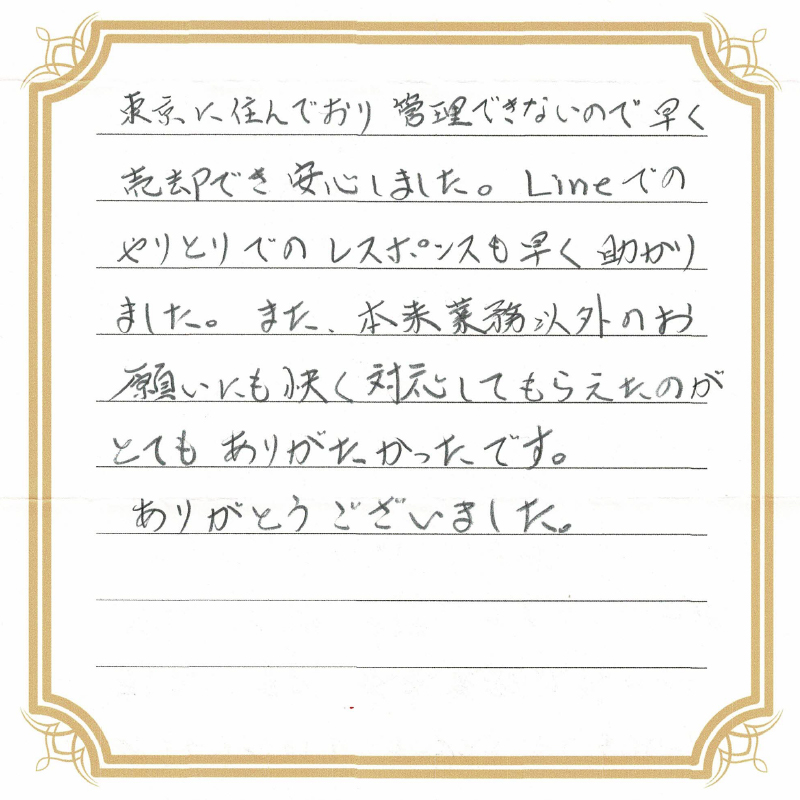 東京に住んでおり管理できないので早く
売却でき安心しました。Lineでの
やりとりでのレスポンスも早く助かり
ました。また、本来業務以外のお
願いにも快く対応してもらえたのが
とてもありがたかったです。
ありがとうございました。